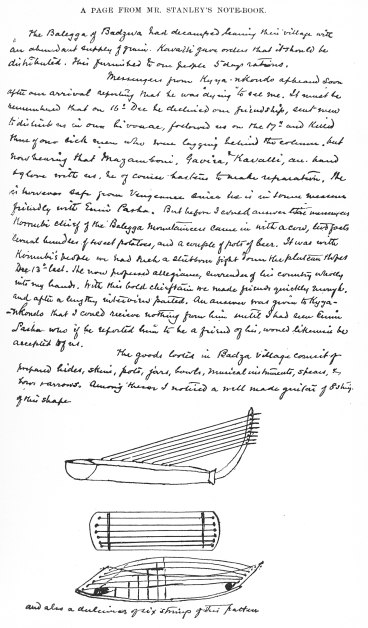 A PAGE FROM MR. STANLEY'S NOTE-BOOK.
The Balegga of Badzwa had decamped leaving their village with
an abundant supply of grain. Kavalli gave orders that it should be
distributed. This furnished to our people 5 days rations.
Messengers from Kyya-nkondo appeared soon
after our arrival reporting that he was "dying" to see me. It must be
remembered that on 16th Dec he declined our friendship, sent men
to disturb us in our bivouac, followed us on the 17th and killed
three of our sick men who were lagging behind the column, but
now hearing that Mazamboni, Gavira, Kavalli, are hand
& glove with us, he of course hastens to make reparation. He
is however safe from vengeance since he is in some measure
friendly with Emin Pasha. But before I could answer these messengers
Komubi chief of the Balegga mountaineers came in with a cow, two goats
several bundles of sweet potatoes, and a couple of pots of beer. It was with
Komubi's people we had such a stubborn fight from the plateau slopes
Dec 13th last. He now proposed allegiance, surrender of his country wholly
into my hands. With this bold chieftain we made friends quickly enough.
and after a lengthy interview parted. An answer was given to Kyya-
-nkondo that I could receive nothing from him until I had seen Emin
Pasha who if he reported him to be a friend of his, would likewise be
accepted by us.
The goods looted in Badzwa village consist of
prepared hides, skins, pots, jars, bowls, musical instruments, spears, &
bows & arrows. Among these I noticed a well made guitar of 8 strings
of this shape
and also a dulcimer of six strings of this pattern